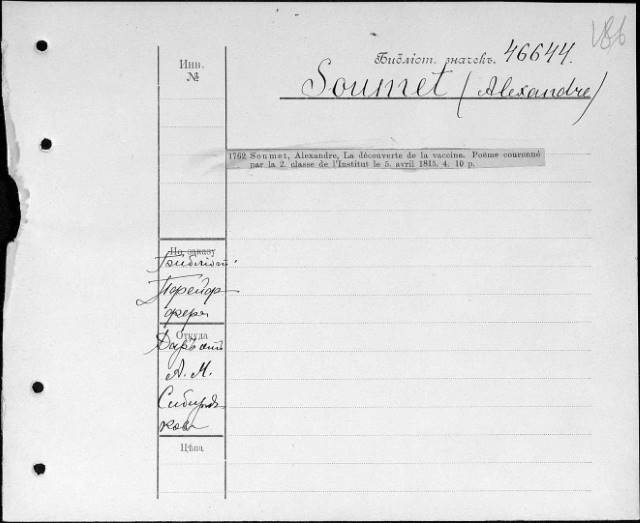 V86
Библіот. значекъ. 46644.
Инв.
№
Soumet (Alexandre)
1762 Soumet, Alexandre, La découverte de la vaccine. Poëme couronné
par la 2. classe de l'Institut le 5. avril 1815. 4. 10 p.
По заказу
Библіот.
Пфейф-
фера
Откуда
Даръ отъ
А. М.
Сибиря-
кова
Цѣна